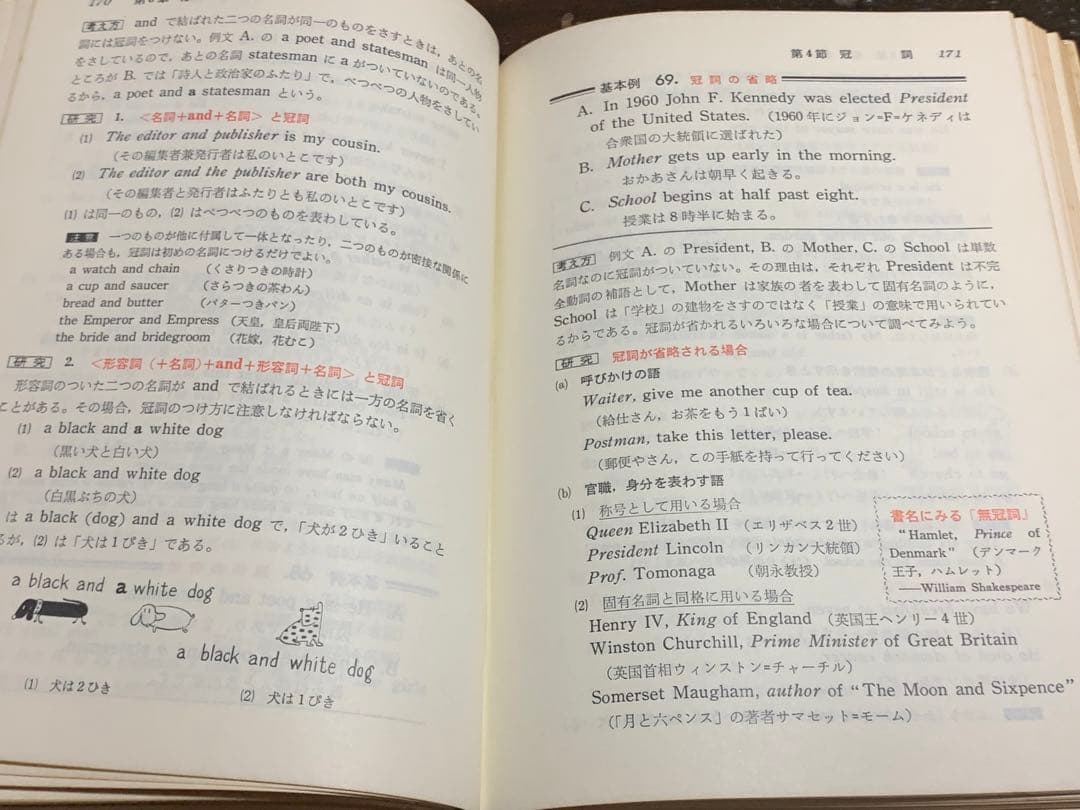 170
考え方 and で結ばれた二つの名詞が同一のものをさすときは，あとの名
詞には冠詞をつけない。例文 A. の a poet and statesman は同一人物
をさしているので，あとの名詞 statesman に a がついていないのである。
ところが B. では「詩人と政治家のふたり」で，べつべつの人物をさしてい
るから，a poet and a statesman という。
研究 1. <名詞+and+名詞> と冠詞
(1) The editor and publisher is my cousin.
(その編集者兼発行者は私のいとこです)
(2) The editor and the publisher are both my cousins.
(その編集者と発行者はふたりとも私のいとこです)
(1) は同一のもの，(2) はべつべつのものを表わしている。
注意 一つのものが他に付属して一体となったり，二つのものが密接な関係に
ある場合も，冠詞は初めの名詞につけるだけでよい。
a watch and chain (くさりつきの時計)
a cup and saucer (さらつきの茶わん)
bread and butter (バターつきパン)
the Emperor and Empress (天皇，皇后両陛下)
the bride and bridegroom (花嫁，花むこ)
研究 2. <形容詞 (+名詞)+and+形容詞+名詞> と冠詞
形容詞のついた二つの名詞が and で結ばれるときには一方の名詞を省く
ことがある。その場合，冠詞のつけ方に注意しなければならない。
(1) a black and a white dog
(黒い犬と白い犬)
(2) a black and white dog
(白黒ぶちの犬)
は a black (dog) and a white dog で，「犬が2ひき」いること
るが，(2) は「犬は1ぴき」である。
a black and a white dog
a black and white dog
(1) 犬は2ひき
(2) 犬は1ぴき
第4節 冠 詞 171
基本例 69. 冠詞の省略
A. In 1960 John F. Kennedy was elected President
of the United States. (1960年にジョン=F=ケネディは
合衆国の大統領に選ばれた)
B. Mother gets up early in the morning.
おかあさんは朝早く起きる。
C. School begins at half past eight.
授業は8時半に始まる。
考え方 例文 A. の President, B. の Mother, C. の School は単数
名詞なのに冠詞がついていない。その理由は，それぞれ President は不完
全動詞の補語として，Mother は家族の者を表わして固有名詞のように，
School は「学校」の建物をさすのではなく「授業」の意味で用いられてい
るからである。冠詞が省かれるいろいろな場合について調べてみよう。
研究 冠詞が省略される場合
(a) 呼びかけの語
Waiter, give me another cup of tea.
(給仕さん，お茶をもう1ぱい)
Postman, take this letter, please.
(郵便やさん，この手紙を持って行ってください)
(b) 官職，身分を表わす語
(1) 称号として用いる場合
Queen Elizabeth II (エリザベス2世)
President Lincoln (リンカン大統領)
Prof. Tomonaga (朝永教授)
書名にみる「無冠詞」
"Hamlet, Prince of
Denmark" (デンマーク
王子，ハムレット)
——William Shakespeare
(2) 固有名詞と同格に用いる場合
Henry IV, King of England (英国王ヘンリー4世)
Winston Churchill, Prime Minister of Great Britain
(英国首相ウィンストン=チャーチル)
Somerset Maugham, author of "The Moon and Sixpence"
(「月と六ペンス」の著者サマセット=モーム)